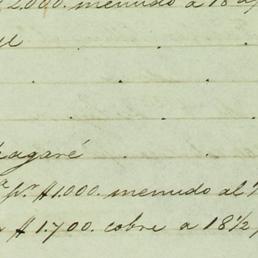 2.000. menudo a 18
pagaré
pr. $1.000. menudo al
$1.700. cobre a 18½